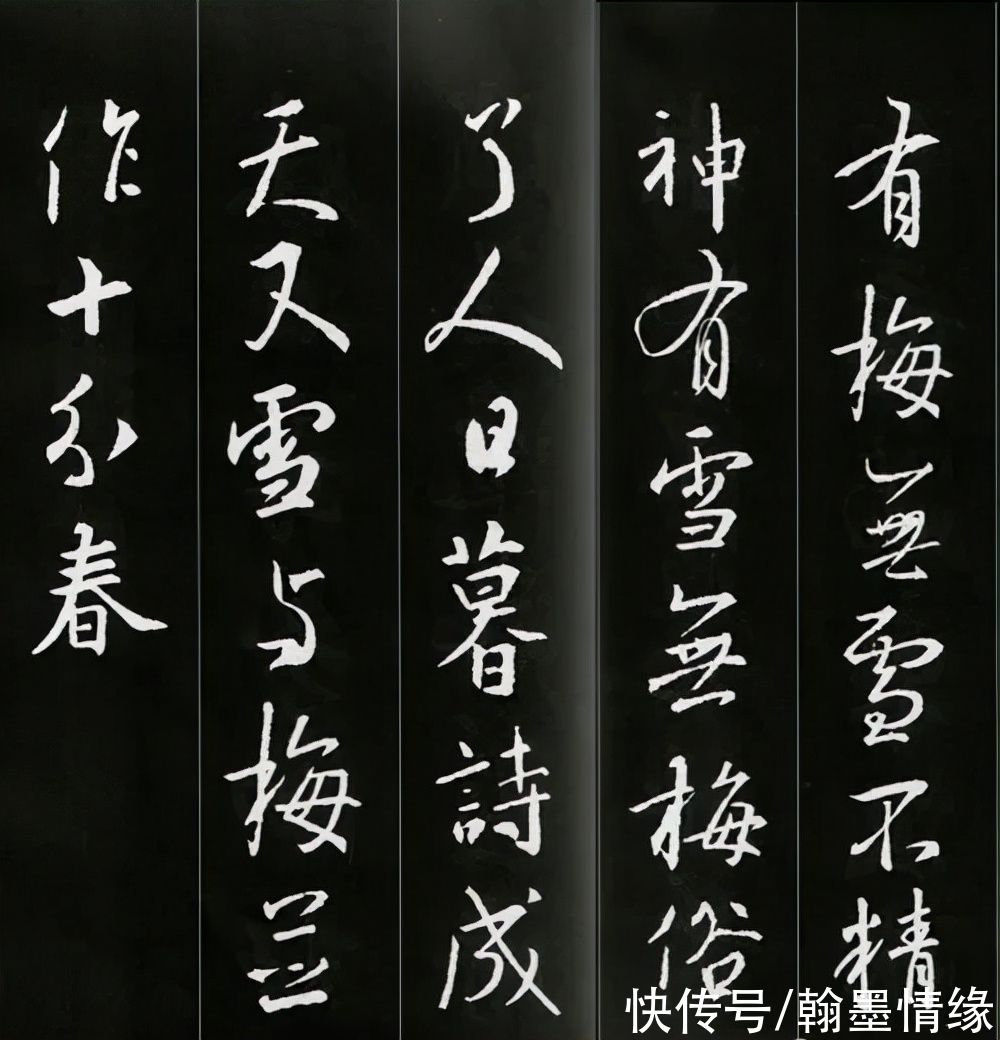 有梅無雪不精
神有雪無梅俗
了人日暮詩成
天又雪与梅並
作十分春
快传号/翰墨情缘